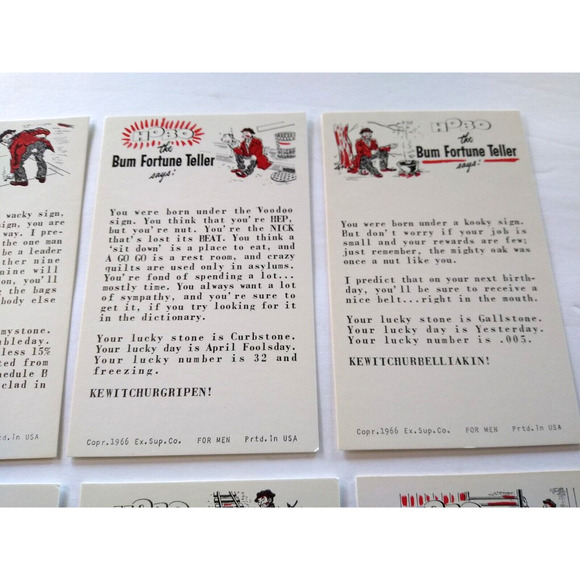 wacky sign.
sign, you are
way. I pre-
the one man
be a leader
ther nine
nine will
on, you'll
g the bags
body else
mystone.
mbleday.
less 15%
ted from
hedule B
clad in
td.in USA
HOBO
the
Bum Fortune Teller
says:
You were born under the Voodoo
sign. You think that you're HEP,
but you're nut. You're the NICK
that's lost its BEAT. You think a
'sit down' is a place to eat, and
A GO GO is a rest room, and crazy
quilts are used only in asylums.
You're fond of loafing a lot...
mostly time. You always want a lot
of sympathy, and you're sure to
get it, if you try looking for it
in the dictionary.
Your lucky stone is Curbstone.
Your lucky day is April Foolsday.
Your lucky number is 32 and
freezing.
KEWITCHURGRIPEN!
Copr.1966 Ex.Sup.Co. FOR MEN Prtd.in USA
HOBO
the
Bum Fortune Teller
says:
You were born under a kooky sign.
But don't worry if your job is
small and your rewards are few;
just remember, the mighty oak was
once a nut like you.
I predict that on your next birth-
day, you'll be sure to receive a
nice belt...right in the mouth.
Your lucky stone is Gallstone.
Your lucky day is Yesterday.
Your lucky number is .005.
KEWITCHURBELLIAKIN!
Copr.1966 Ex.Sup.Co. FOR MEN Prtd.in USA
HOBO
HOBO